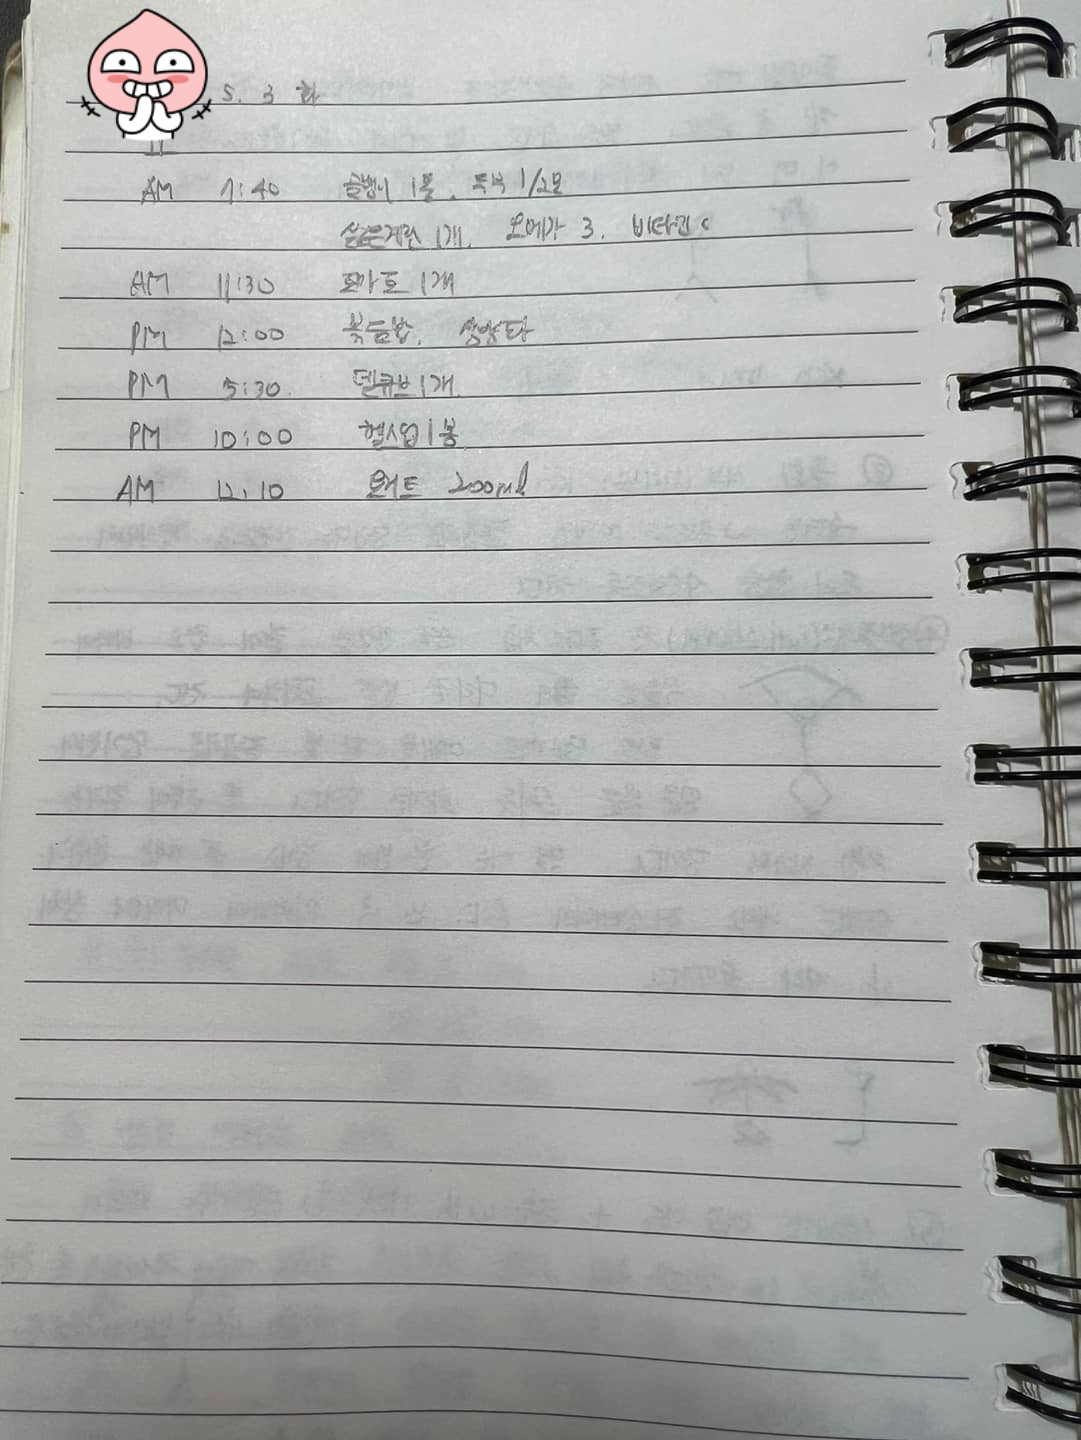 5. 3 화
AM 7:40 골뱅이 1줌, 두부 1/2모
삶은계란 1개, 오메가 3, 비타민 c
AM 11:30 토마토 1개
PM 12:00 볶음밥,
PM 5:30. 1개.
PM 10:00 헬스업 1봉
AM 12:10 200ml